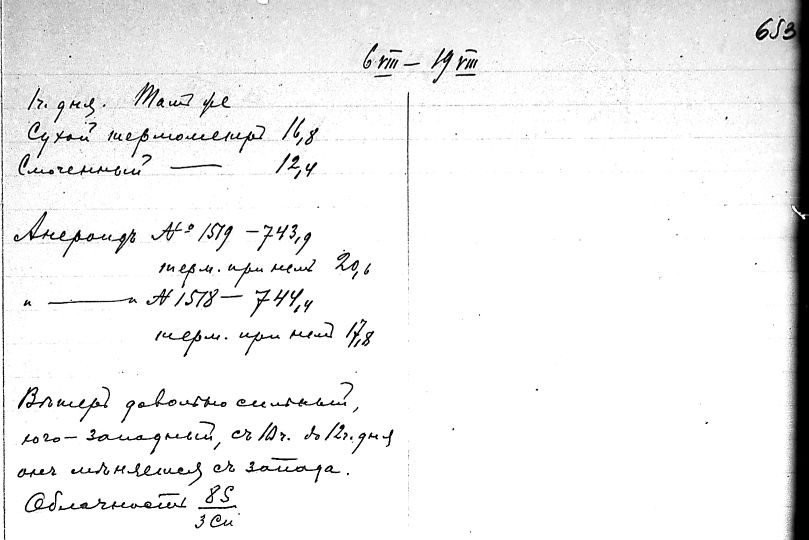 653
6 VIII — 19 VIII
1 ч. дня.
Сухой термометръ 16,8
Смоченный — 12,4
Анероидъ № 1519 — 743,9
терм. при немъ 20,6
" — " № 1518 — 744,4
терм. при немъ 17,8
Вѣтеръ довольно сильный,
юго-западный, съ 10 ч. до 12 ч. дня
онъ мѣняется съ запада.
Облачность 8S
3Cu